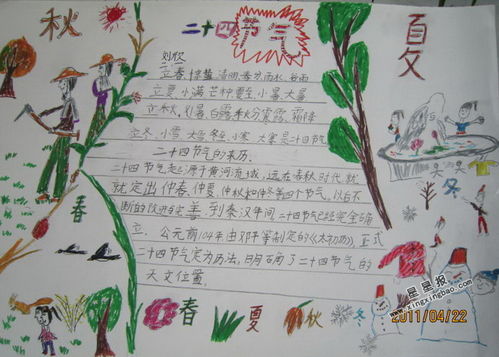 秋
二十四节气
夏
刘欣
立春、惊蛰、清明、春分、雨水、谷雨
立夏、小满、芒种、夏至、小暑、大暑
立秋、处暑、白露、秋分、寒露、霜降
立冬、小雪、大雪、冬至、小寒、大寒是二十四节气
二十四节气的来历.
二十四节气起源于黄河流域,远在春秋时代,就
就定出仲春、仲夏、仲秋和仲冬等四个节气,以后不
断的改进与完善,到秦汉年间,二十四节气已经完全确
立.公元前104年由邓平等制定的《太初历》,正式
二十四节气定为历法,明确了二十四节气的
天文位置.
春
冬
春 夏 秋 冬
星星报
xingxingbao.com
2011/04/22